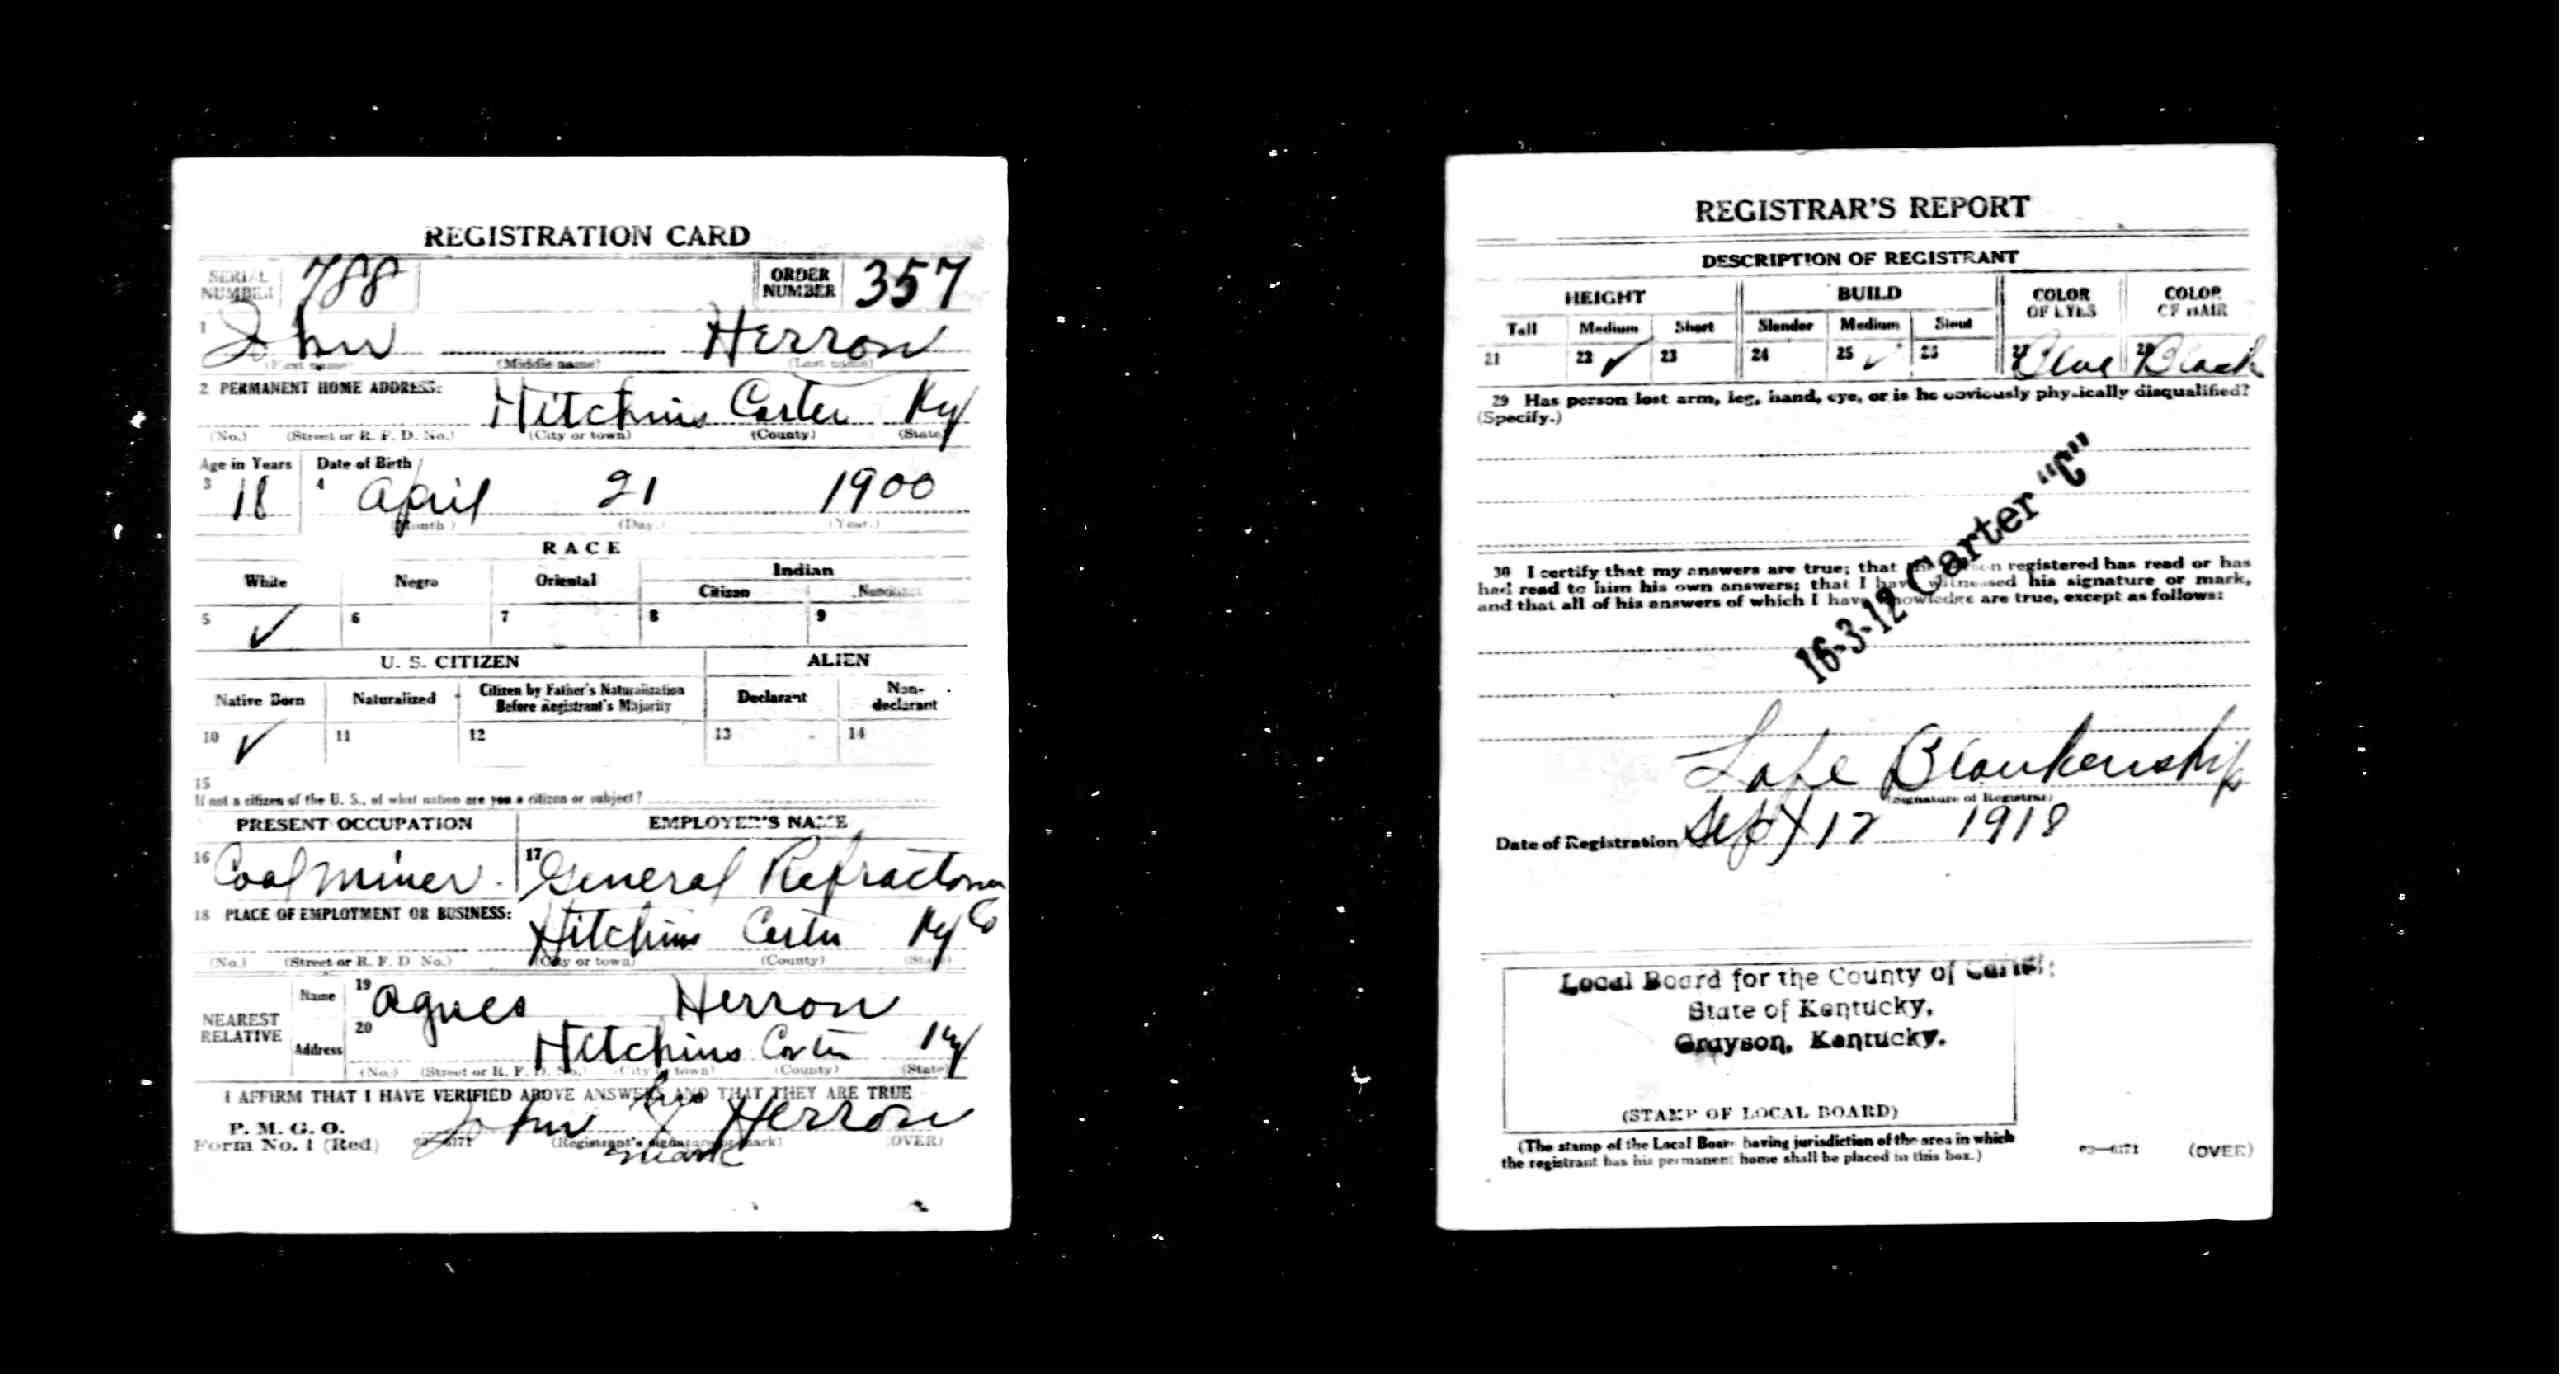 REGISTRATION CARD
SERIAL NUMBER 788 ORDER NUMBER 357
1 John Herron
(First name) (Middle name) (Last name)
2 PERMANENT HOME ADDRESS:
Hitchins Carter Ky
(No.) (Street or R. F. D. No.) (City or town) (County) (State)
Age in Years Date of Birth
3 18 4 April 21 1900
(Month) (Day.) (Year.)
RACE
White Negro Oriental Indian
Citizen Noncitizen
5 ✓ 6 7 8 9
U. S. CITIZEN ALIEN
Native Born Naturalized Citizen by Father's Naturalization Before Registrant's Majority Declarant Non-declarant
10 ✓ 11 12 13 14
15
If not a citizen of the U. S., of what nation are you a citizen or subject?
PRESENT OCCUPATION EMPLOYER'S NAME
16 Coal miner. 17 General Refractories
18 PLACE OF EMPLOYMENT OR BUSINESS: Co
Hitchins Carter Ky
(No.) (Street or R. F. D. No.) (City or town) (County) (State)
NEAREST RELATIVE
Name 19 Agnes Herron
Address 20 Hitchins Carter Ky
(No.) (Street or R. F. D. No.) (City or town) (County) (State)
I AFFIRM THAT I HAVE VERIFIED ABOVE ANSWERS AND THAT THEY ARE TRUE
P. M. G. O.
Form No. 1 (Red) 03—6171 John his X mark Herron
(Registrant's signature or mark) (OVER)
REGISTRAR'S REPORT
DESCRIPTION OF REGISTRANT
HEIGHT BUILD COLOR OF EYES COLOR OF HAIR
Tall Medium Short Slender Medium Stout
21 22 ✓ 23 24 25 ✓ 26 27 Blue 28 Black
29 Has person lost arm, leg, hand, eye, or is he obviously physically disqualified?
(Specify.)
30 I certify that my answers are true; that the person registered has read or has
had read to him his own answers; that I have witnessed his signature or mark,
and that all of his answers of which I have knowledge are true, except as follows:
16-3-12 Carter "C"
Lafe Blankenship
(Signature of Registrar)
Date of Registration Sept 12 1918
Local Board for the County of Carter
State of Kentucky,
Grayson, Kentucky.
(STAMP OF LOCAL BOARD)
(The stamp of the Local Board having jurisdiction of the area in which
the registrant has his permanent home shall be placed in this box.)
03—6171 (OVER)